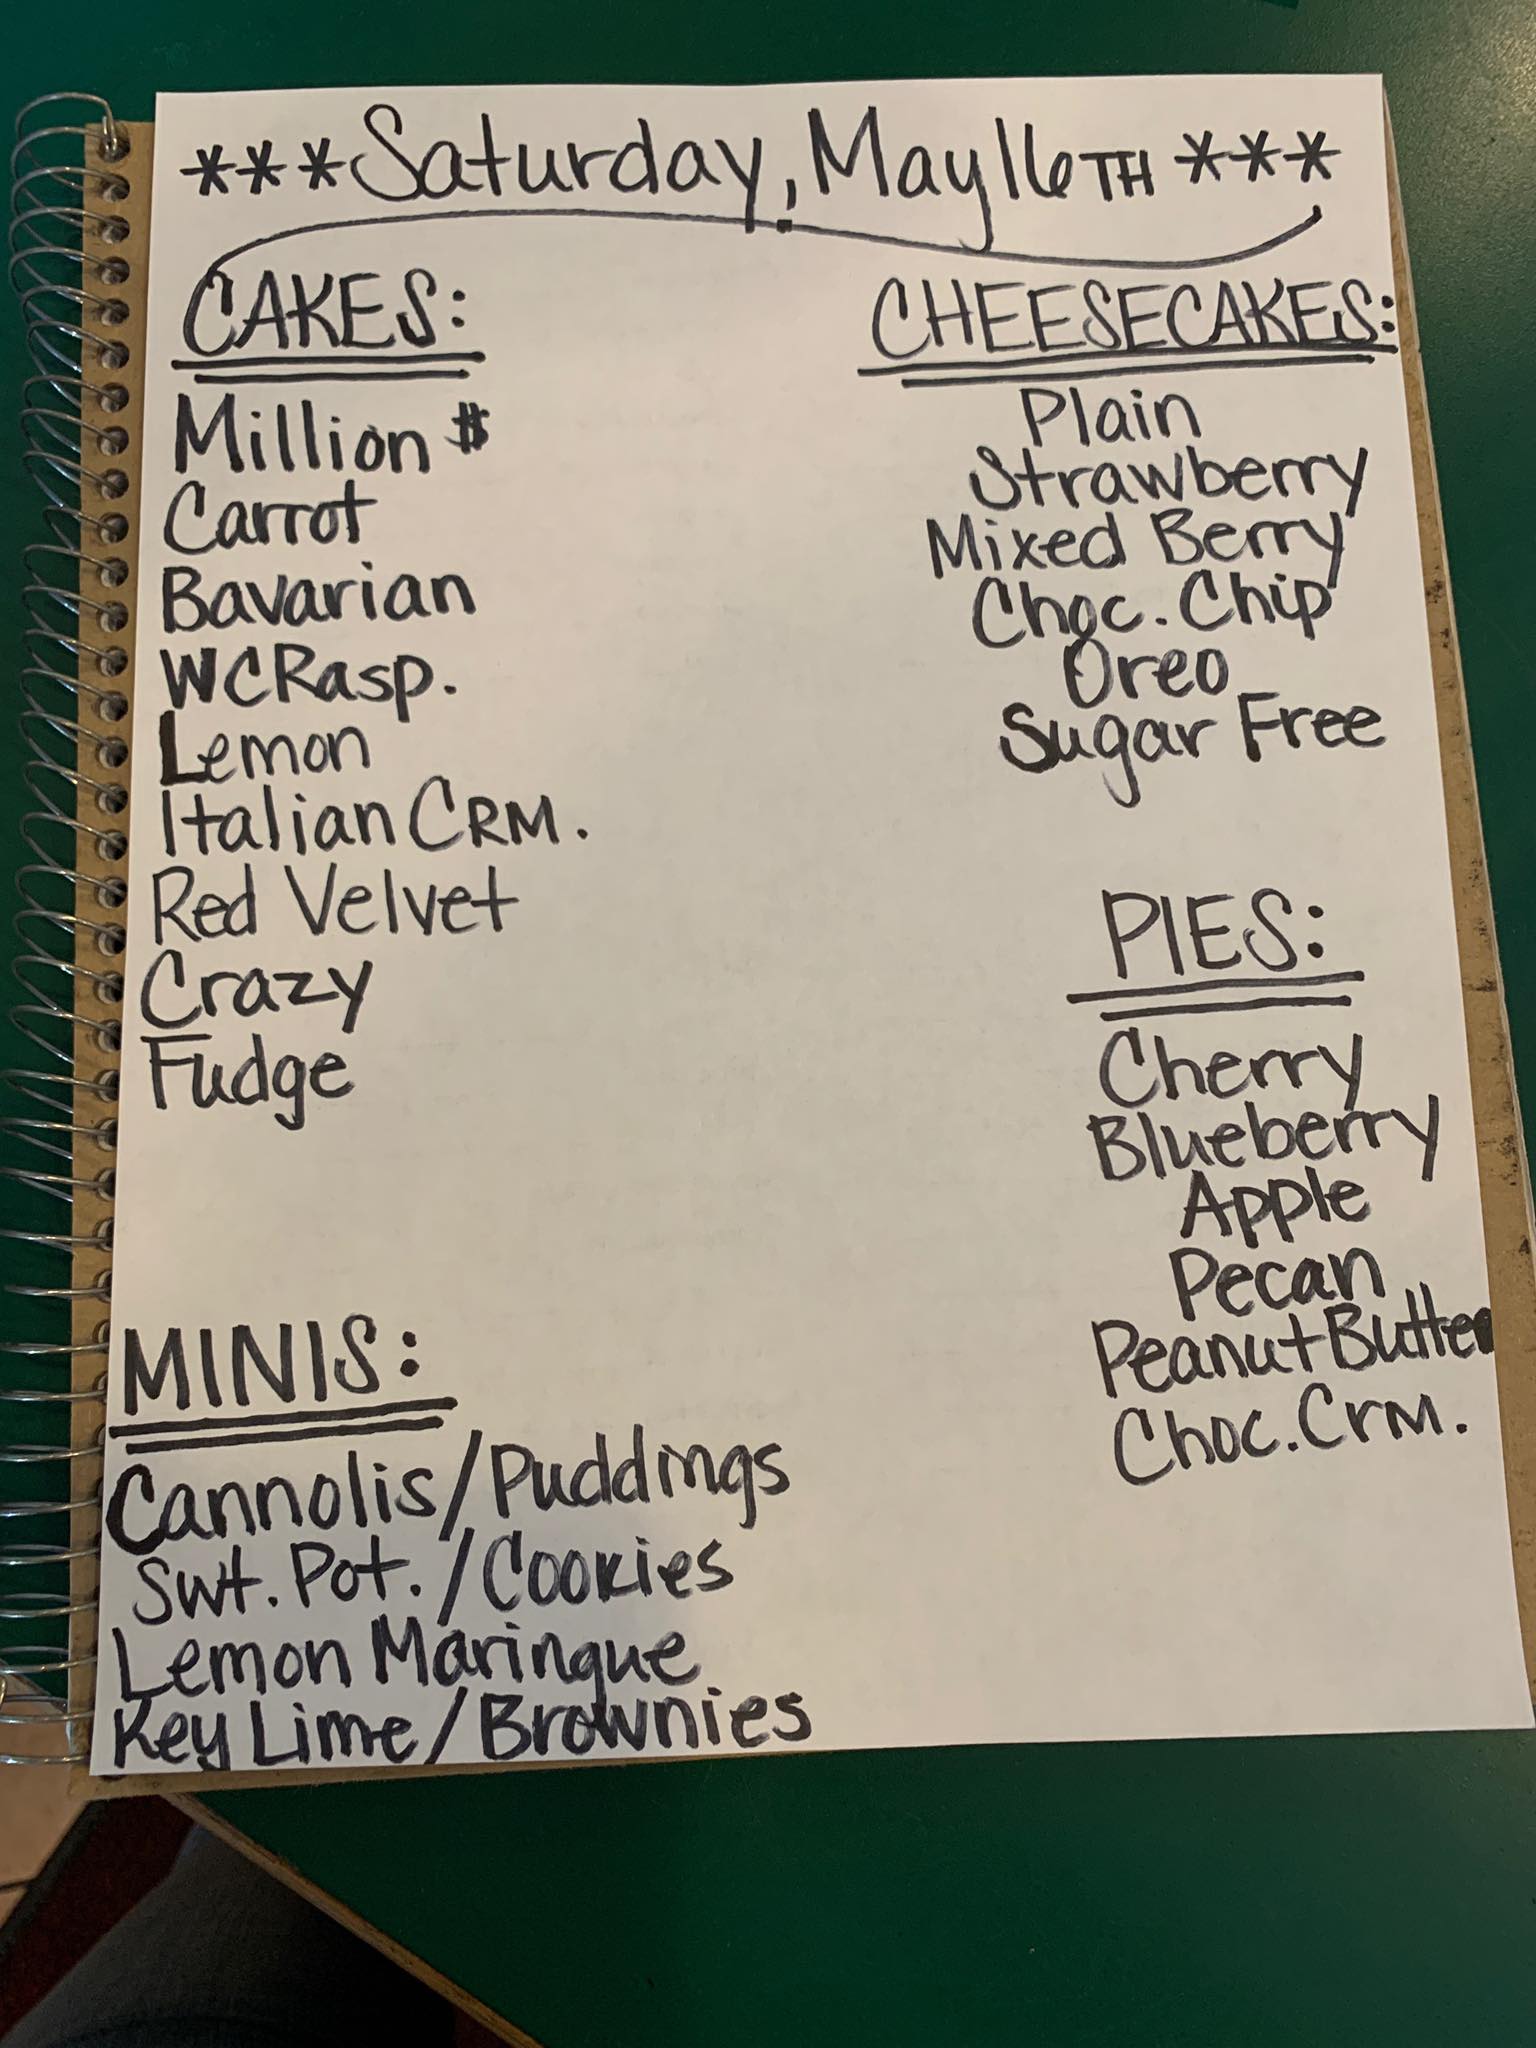 ***Saturday, May 16TH***
CAKES:
Million $
Carrot
Bavarian
WCRasp.
Lemon
Italian CRM.
Red Velvet
Crazy
Fudge
MINIS:
Cannolis/Puddings
Swt. Pot./Cookies
Lemon Maringue
Key Lime/Brownies
CHEESECAKES:
Plain
Strawberry
Mixed Berry
Choc. Chip
Oreo
Sugar Free
PIES:
Cherry
Blueberry
Apple
Pecan
Peanut Butter
Choc. Crm.